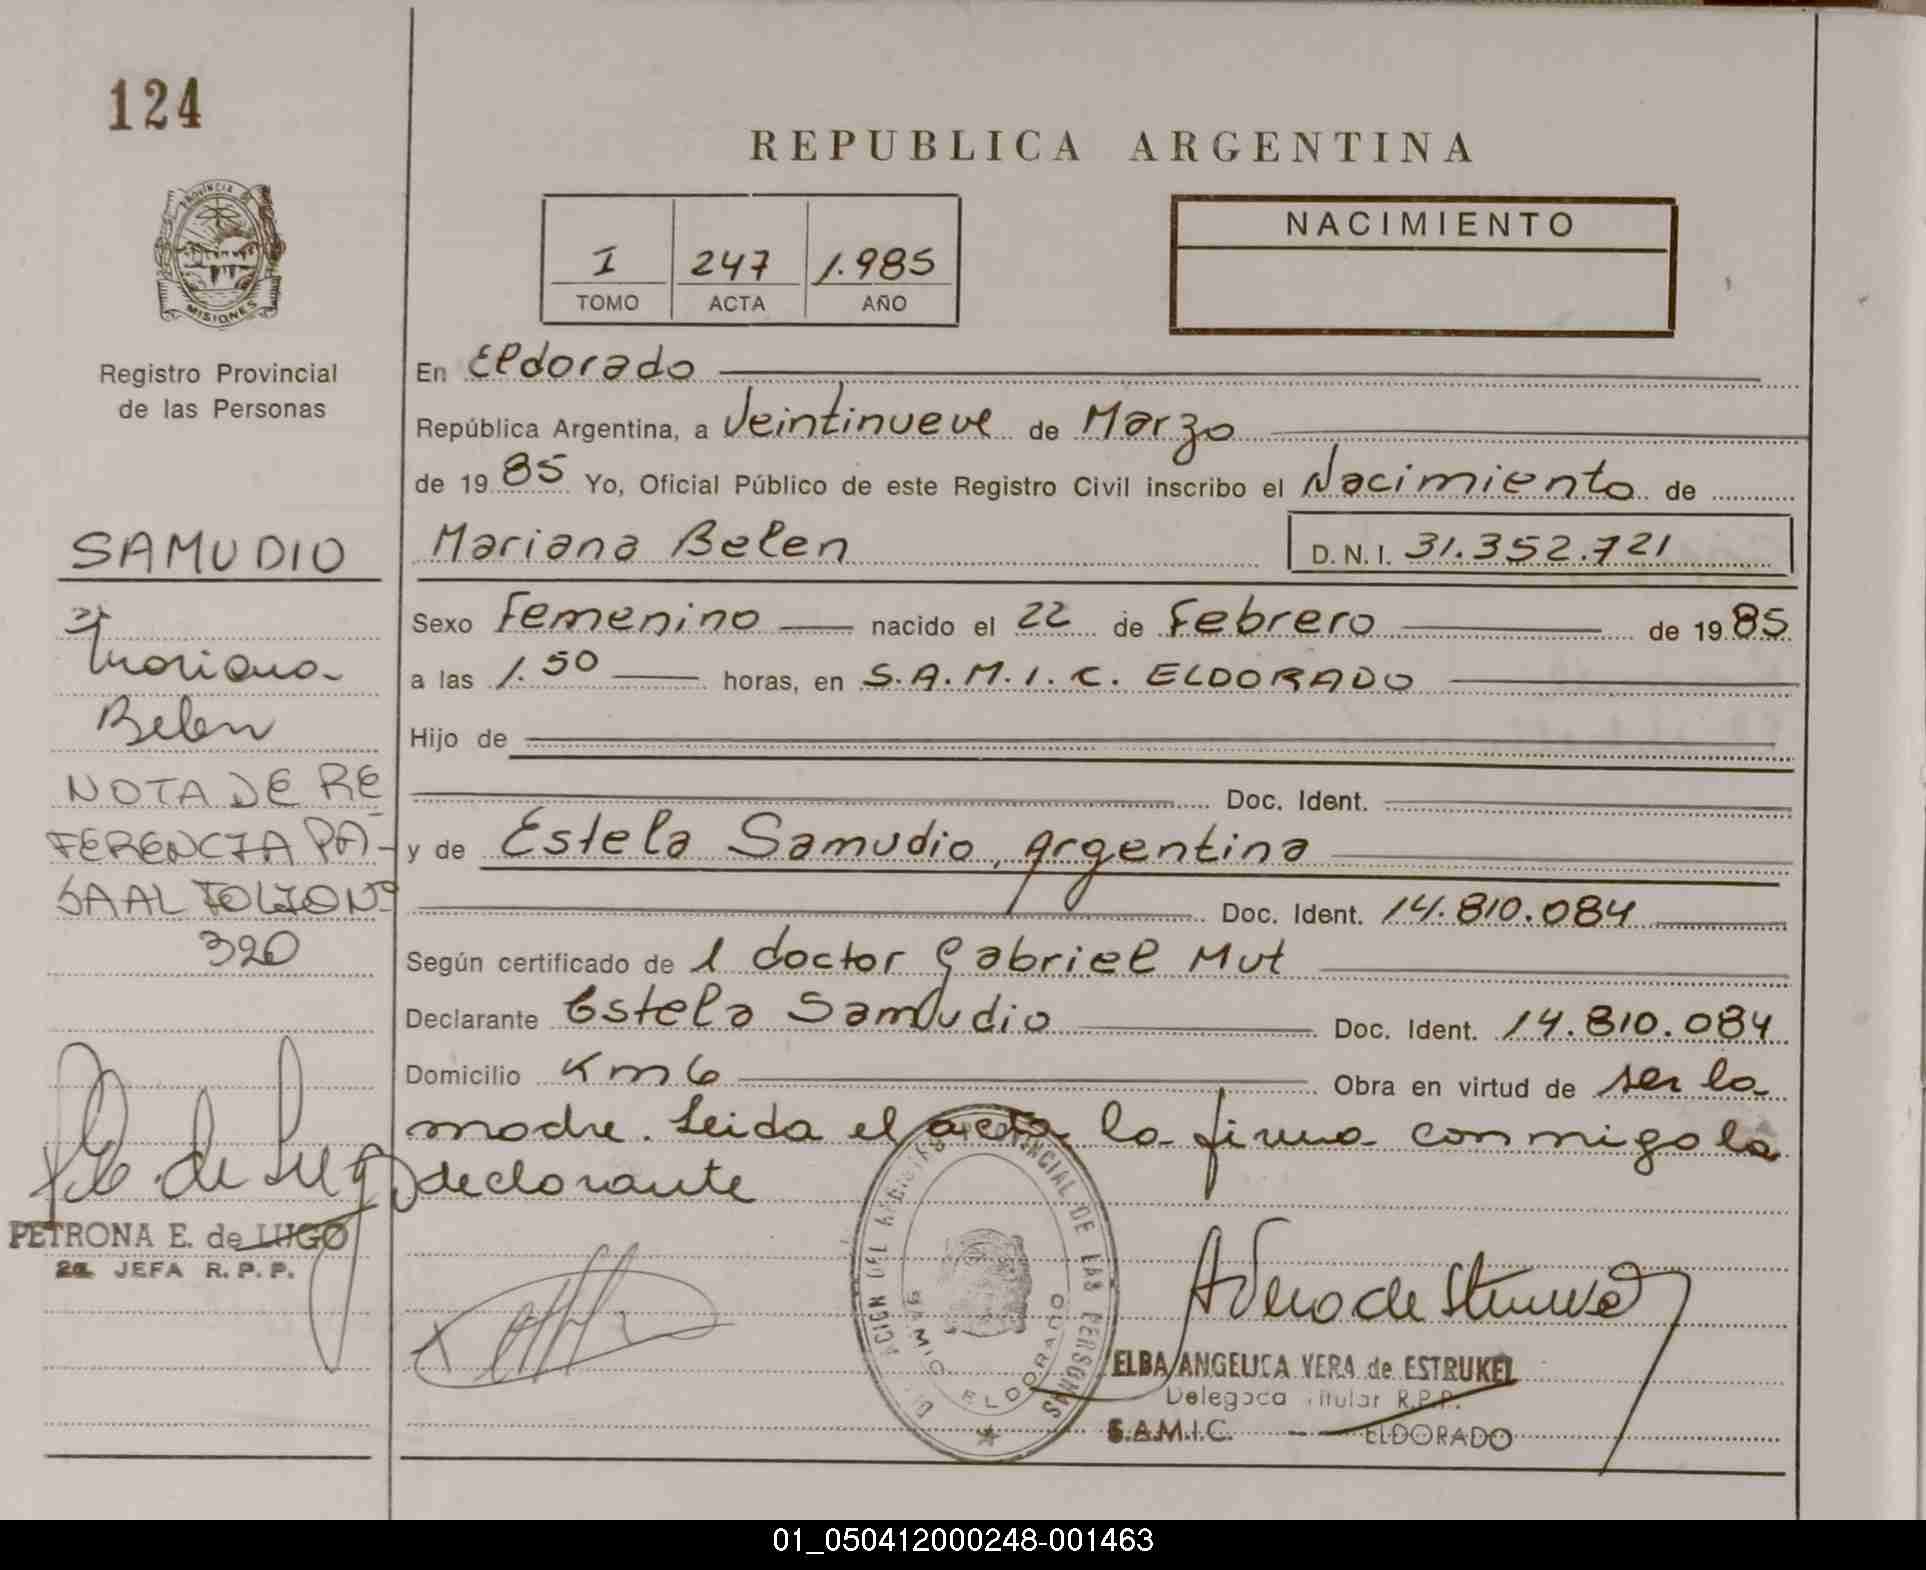 124
REPUBLICA ARGENTINA
PROVINCIA DE
MISIONES
Registro Provincial
de las Personas
I 247 1.985
TOMO ACTA AÑO
NACIMIENTO
En Eldorado
República Argentina, a Veintinueve de Marzo
de 19 85 Yo, Oficial Público de este Registro Civil inscribo el Nacimiento de
Mariana Belen D.N.I. 31.352.721
Sexo Femenino nacido el 22 de Febrero de 19 85
a las 1.50 horas, en S.A.M.I.C. ELDORADO
Hijo de
Doc. Ident.
y de Estela Samudio, Argentina
Doc. Ident. 14.810.084
Según certificado de l doctor Gabriel Mut
Declarante Estela Samudio Doc. Ident. 14.810.084
Domicilio Km 6 Obra en virtud de ser la
madre. Leida el acta la firma conmigo la
declarante
SAMUDIO
Mariana
Belen
NOTA DE RE
FERENCIA PA-
SA AL FOLIO Nº
320
PETRONA E. de LUGO
2a. JEFA R.P.P.
PROVINCIAL DE LAS PERSONAS
SAMIC ELDORADO
ELBA ANGELICA VERA de ESTRUKEL
Delegada Titular R.P.P.
S.A.M.I.C. - ELDORADO
01_050412000248-001463